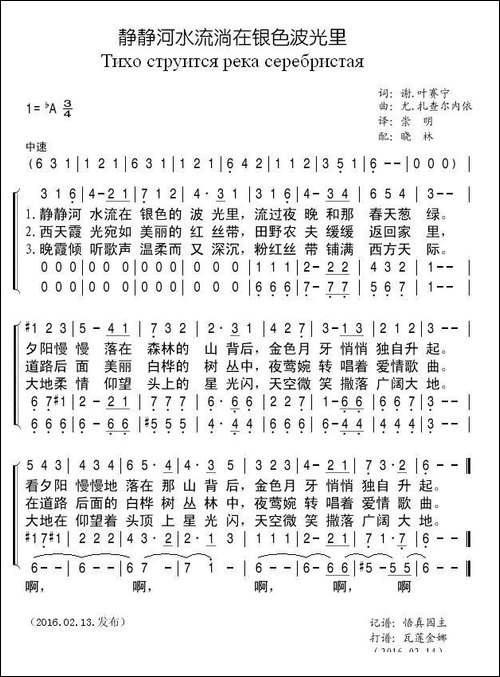 静静河水流淌在银色波光里
Тихо струится река серебристая
词: 谢.叶赛宁
1= ♭A 3/4
曲: 尤.扎查尔内依
译: 崇 明
中速
配: 晓 林
(6 3 1 | 1 2 1 | 6 3 1 | 1 2 1 | 6 4 2 | 1 1 2 | 3 5 1 | 6 -- | 0 0 0)
3 1 6 | 4-21 | 7 1 2 | 4·31 | 316 | 4-34 | 654 | 3--
1. 静静河 水流在 银色的 波 光里, 流过夜 晚 和那 春天葱 绿。
2. 西天霞 光宛如 美丽的 红 丝带, 田野农 夫 缓缓 返回家 里,
3. 晚霞倾 听歌声 温柔而 又 深沉, 粉红丝 带 铺满 西方天 际。
0 0 0 | 0 0 0 | 0 0 0 | 0 0 0 | 1 1 1 | 2-22 | 432 | 1--
0 0 0 | 0 0 0 | 0 0 0 | 0 0 0 | 6 6 6 | 7-77 | 2 1 7 | 6--
#1 2 3 | 5-41 | 7 3 2 | 2·31 | 4 2 7 | 3-13 | 2 1 2 | 3--
夕阳慢 慢 落在 森林的 山 背后, 金色月 牙 悄悄 独自升 起。
道路后 面 美丽 白桦的 树 丛中, 夜莺婉 转 唱着 爱情歌 曲。
大地柔 情 仰望 头上的 星 光闪, 天空微 笑 撒落 广阔大 地。
5 4 3 | 4 3 4 | 65·4 | 3·21 | 3 2 3 | 4-21 | 7 3·2 | 6--
看夕阳 慢慢地 落在 那 山 背后, 金色月 牙 悄悄 独自 升 起。
在道路 后面的 白桦 树 丛林中, 夜莺婉 转 唱着 爱情 歌 曲。
大地在 仰望着 头顶 上 星光闪, 天空微 笑 撒落 广阔 大 地。
啊, 啊, 啊, 啊,
(2016.02.13.发布)
记谱: 悟真园主
打谱: 瓦莲金娜
(2016.02.14)